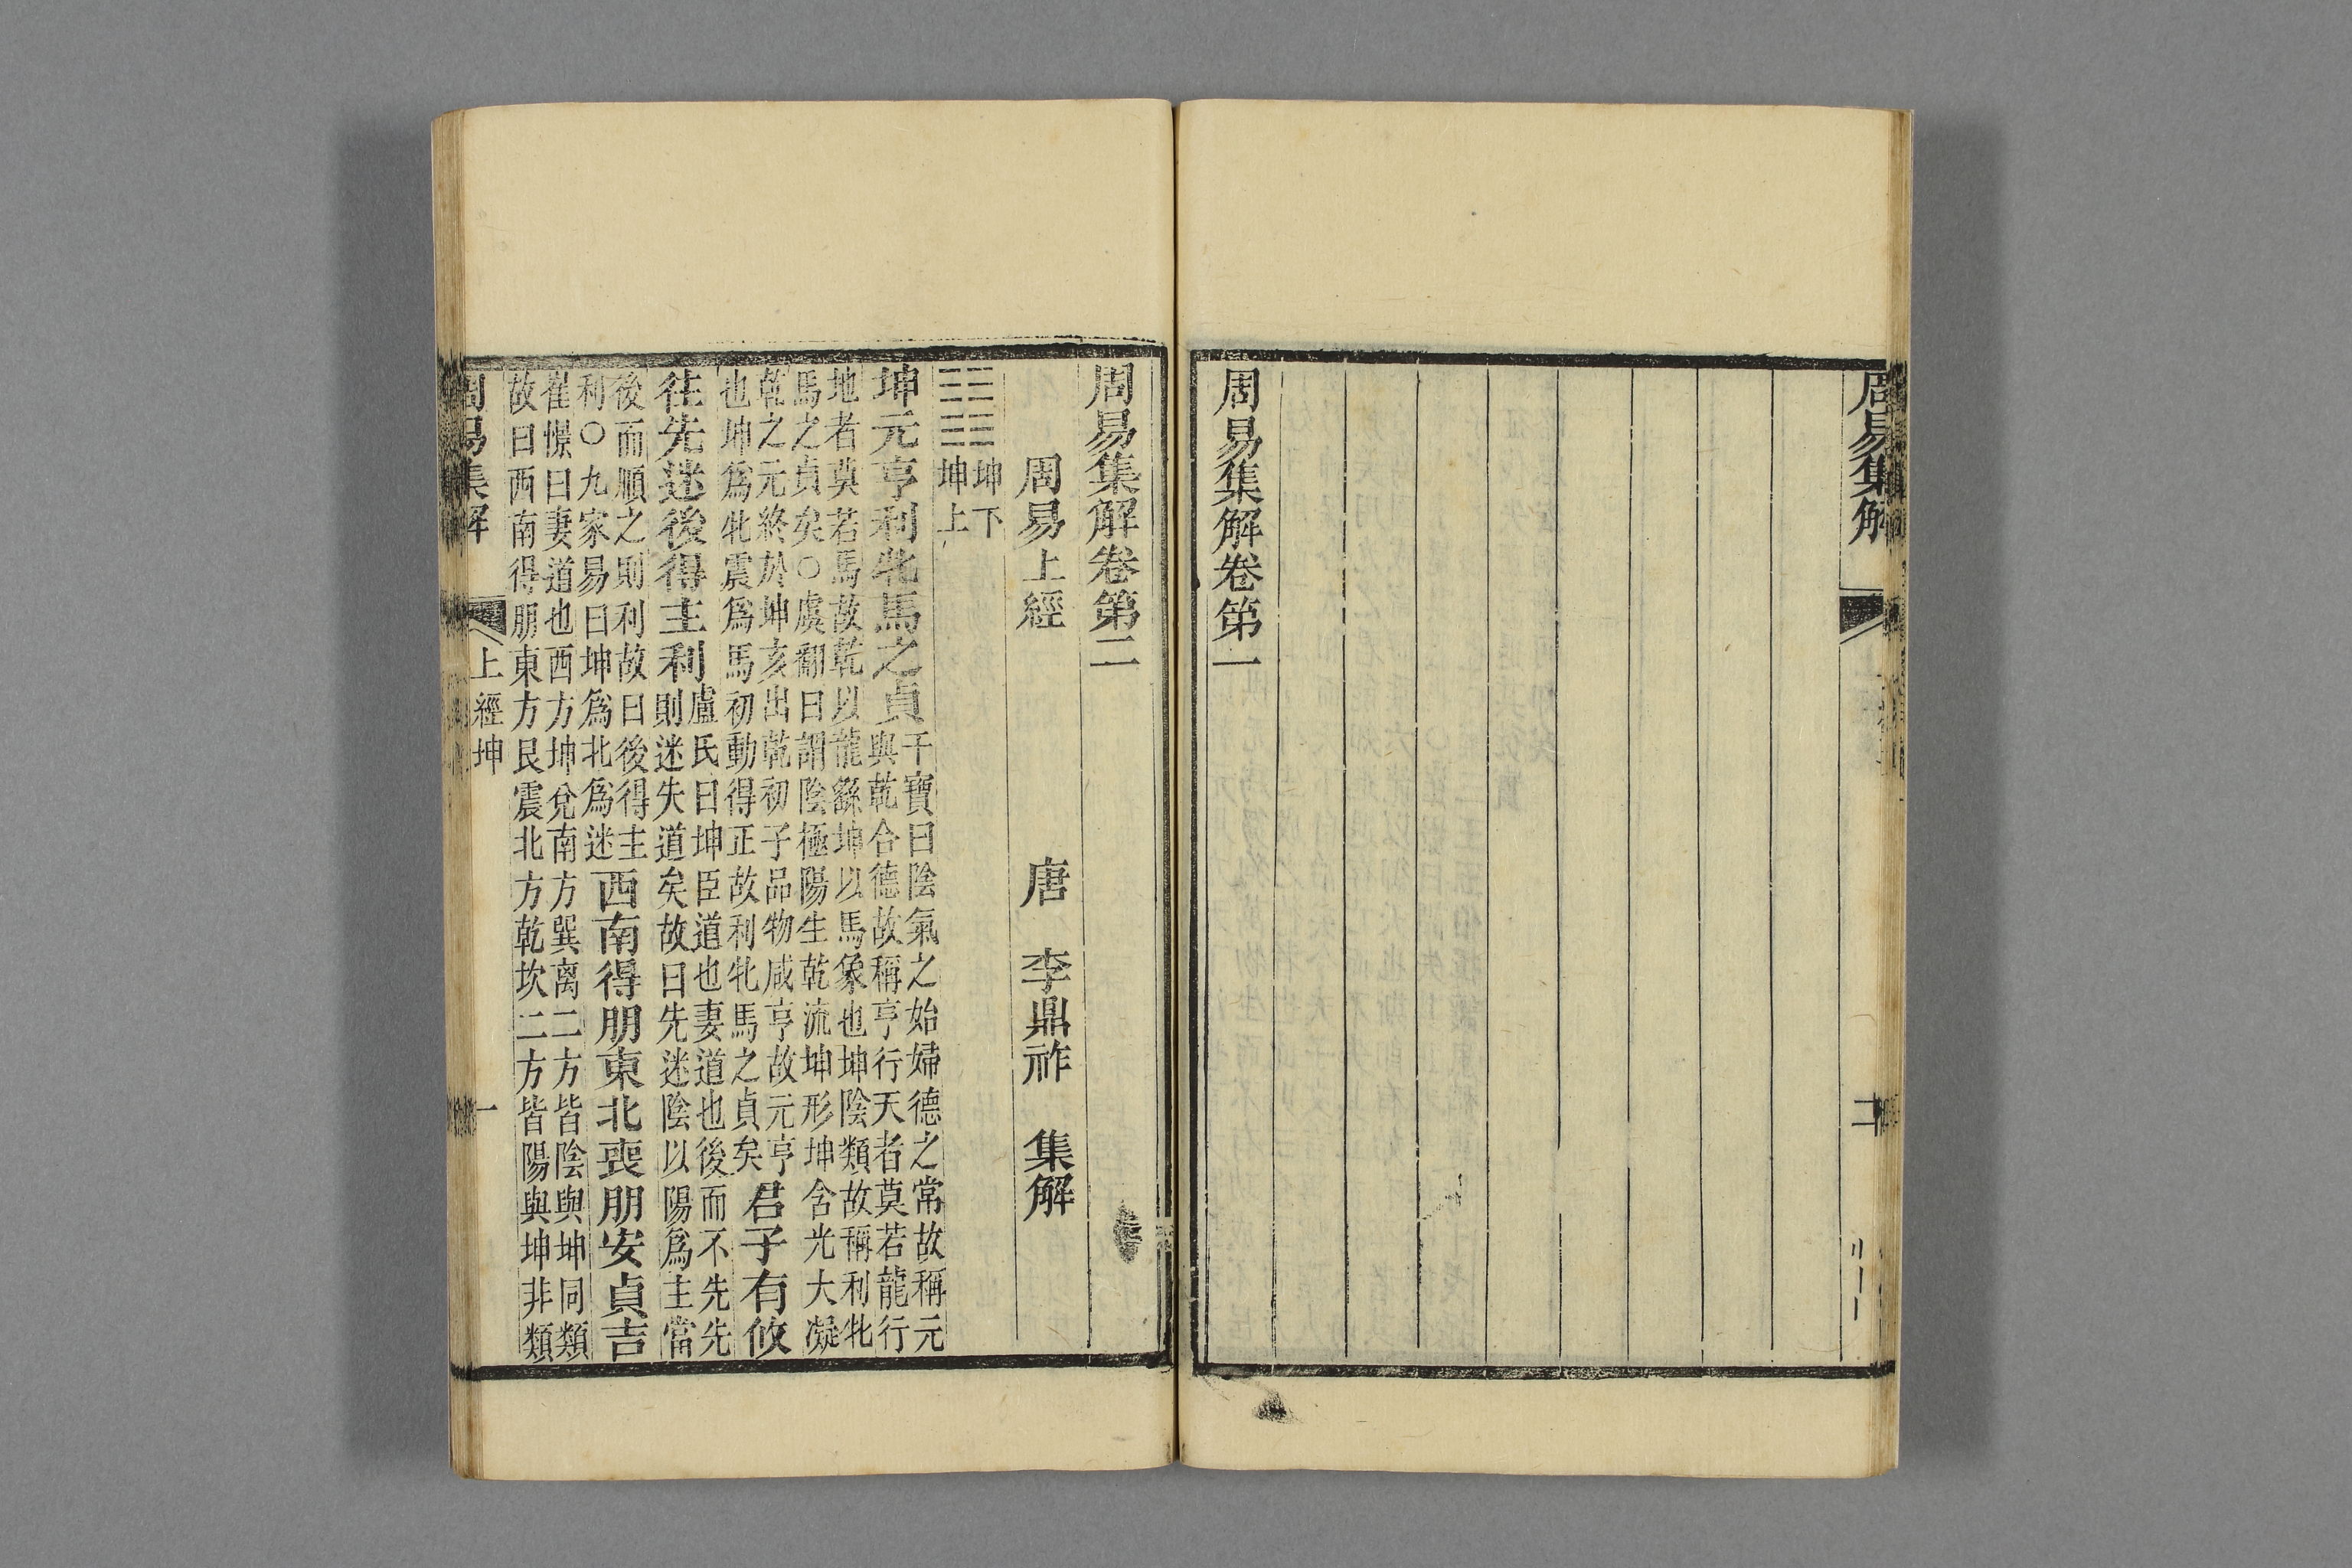 周易集解
周易集解卷第一
周易集解卷第二
周易上經 唐 李鼎祚 集解
坤下
坤上
坤元亨利牝馬之貞
干寶曰陰氣之始婦德之常故稱元
與乾合德故稱亨行天者莫若龍行
地者莫若馬故乾以龍繇坤以馬象也坤陰類故稱利牝
馬之貞矣○虞翻曰謂陰極陽生乾流坤形坤含光大凝
乾之元終於坤亥出乾初子品物咸亨故元亨
也坤為牝震為馬初動得正故利牝馬之貞矣
君子有攸
往先迷後得主利
盧氏曰坤臣道也妻道也後而不先先
則迷失道矣故曰先迷陰以陽為主當
後而順之則利故曰後得主
利○九家易曰坤為北為迷
西南得朋東北喪朋安貞吉
崔憬曰妻道也西方坤兌南方巽离二方皆陰與坤同類
故曰西南得朋東方艮震北方乾坎二方皆陽與坤非類
周易集解 上經坤 一